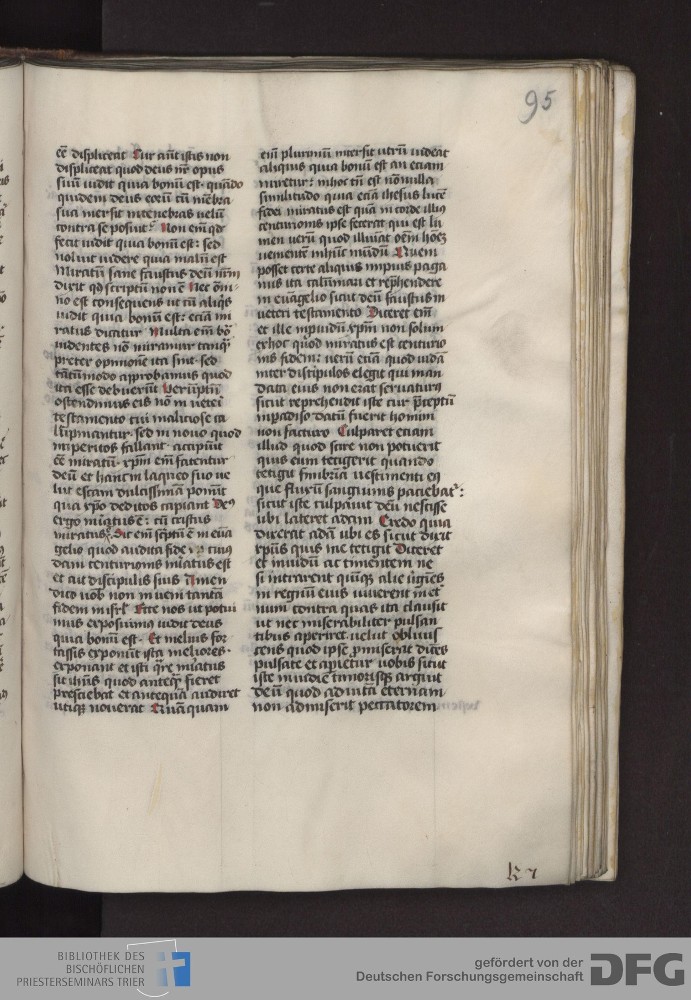 95
eē displiceat Cur autē istis non
displiceat quod deus nr̄ opus
suū uidit quia bonū est· quādo
quidem deus eorū cū mēbra
sua mersit intenebras uelū
contra se posuit· Non em̄ qd̄
fecit uidit quia bonū est: sed
noluit uidere quia malū est
Miratū sane faustus deū nr̄m
dixit qd̄ scriptū non ē Nec om̄i
no est consequens ut cū aliq̄s
uidit quia bonū est: eciā mi
ratus dicatur Multa em̄ bo
uidentes nō miramur tanq̄
preter opinionē ita sint· sed
tātūmodo approbamus quod
ita esse debuerūt Verūptn̄
ostendimus eis nō in ueteri
testamento cui maliciose ca
lūpniantur· sed in nouo quod
imperitos fallant· accipiūt
eē miratū· xp̄m em̄ fatentur
deū et hanc in laqueo suo ue
lut escam dulcissimā ponūt
qua xpō deditos capiant Deꝰ
ergo miratus ē: cū cristus
miratus· Sic em̄ sc̄ptū ē in euā
gelio quod audita fide cuius
dam centurionis miratus est
et ait discipulis suis Amen
dico uob non inueni tantā
fidem in isrl̄ Ecce nos ut potui
mus exposuimus uidit deus
quia bonū est· Et melius for
tassis exponunt ista meliores·
exponant et isti q̄re miratus
sit ihūs quod anteq̄ fieret
presciebat et antequā audiret
utiq̄ nouerat Quāquam
em̄ plurimū intersit utrū uideat
aliquis quia bonū est an eciam
miretur: inhoc tn̄ est nōnulla
similitudo quia eciā ihesus lucē
fidei miratus est quā in corde illiꝰ
centurionis ipse fecerat qui est lu
men uerū quod illuīat oēm hoīez
uenientē inhūc mūdū Quem
posset certe aliquis impius paga
nus ita calūniari et rep̄hendere
in euāgelio sicut deū faustus in
ueteri testamento Diceret em̄
et ille inpuidū xp̄m non solum
exhoc quod miratus est centurio
nis fidem: uerū eciā quod iudā
inter discipulos elegit qui man
data eius non erat seruaturꝰ
sicut reprehendit iste cur p̄ceptū
inpadiso datū fuerit homini
non facturo Culparet eciam
illud quod scire non potuerit
quis eum tetigerit quando
tetigit fimbriā uestimenti eiꝰ
que fluxū sanguinis paciebatˀ:
sicut iste culpauit deū nescisse
ubi lateret adam Credo quia
dixerat adā ubi es sicut dixit
xp̄us quis me tetigit Diceret
et inuidū ac timentem ne
si intrarent quīq̄ alie ūgines
in regnū eius uiuerent inet
num contra quas ita clausit
ut nec miserabiliter pulsan
tibus aperiret uelut obliuis
cens quod ipse p̄miserat dicēs
pulsate et apietur uobis sicut
iste inuidie timorisq̄ arguit
deū quod ad uitā eternam
non admiserit peccatorem
k 7
BIBLIOTHEK DES
BISCHÖFLICHEN
PRIESTERSEMINARS TRIER
gefördert von der
Deutschen Forschungsgemeinschaft DFG